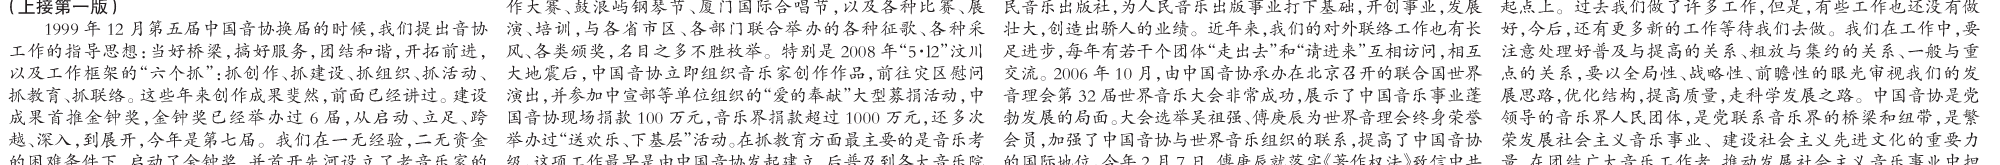 (上接第一版)
1999年12月第五届中国音协换届的时候,我们提出音协
工作的指导思想:当好桥梁,搞好服务,团结和谐,开拓前进,
以及工作框架的“六个抓”:抓创作、抓建设、抓组织、抓活动、
抓教育、抓联络。这些年来创作成果斐然,前面已经讲过。建设
成果首推金钟奖,金钟奖已经举办过6届,从启动、立足、跨
越、深入,到展开,今年是第七届。我们在一无经验,二无资金
的困难条件下,启动了金钟奖,并首开先河设立了老音乐家的
作大赛、鼓浪屿钢琴节、厦门国际合唱节,以及各种比赛、展
演、培训,与各省市区、各部门联合举办的各种征歌、各种采
风、各类颁奖,名目之多不胜枚举。特别是2008年“5·12”汶川
大地震后,中国音协立即组织音乐家创作作品,前往灾区慰问
演出,并参加中宣部等单位组织的“爱的奉献”大型募捐活动,中
国音协现场捐款100万元,音乐界捐款超过1000万元,还多次
举办过“送欢乐、下基层”活动。在抓教育方面最主要的是音乐考
级,这项工作最早是由中国音协发起建立,后普及到各大音乐院
民音乐出版社,为人民音乐出版事业打下基础,开创事业,发展
壮大,创造出骄人的业绩。近年来,我们的对外联络工作也有长
足进步,每年有若干个团体“走出去”和“请进来”互相访问,相互
交流。2006年10月,由中国音协承办在北京召开的联合国世界
音理会第32届世界音乐大会非常成功,展示了中国音乐事业蓬
勃发展的局面。大会选举吴祖强、傅庚辰为世界音理会终身荣誉
会员,加强了中国音协与世界音乐组织的联系,提高了中国音协
的国际地位。今年2月7日,傅庚辰就落实《著作权法》致信中共
起点上。过去我们做了许多工作,但是,有些工作也还没有做
好,今后,还有更多新的工作等待我们去做。我们在工作中,要
注意处理好普及与提高的关系、粗放与集约的关系、一般与重
点的关系,要以全局性、战略性、前瞻性的眼光审视我们的发
展思路,优化结构,提高质量,走科学发展之路。中国音协是党
领导的音乐界人民团体,是党联系音乐界的桥梁和纽带,是繁
荣发展社会主义音乐事业、建设社会主义先进文化的重要力
量,在团结广大音乐工作者、推动发展社会主义音乐事业中担